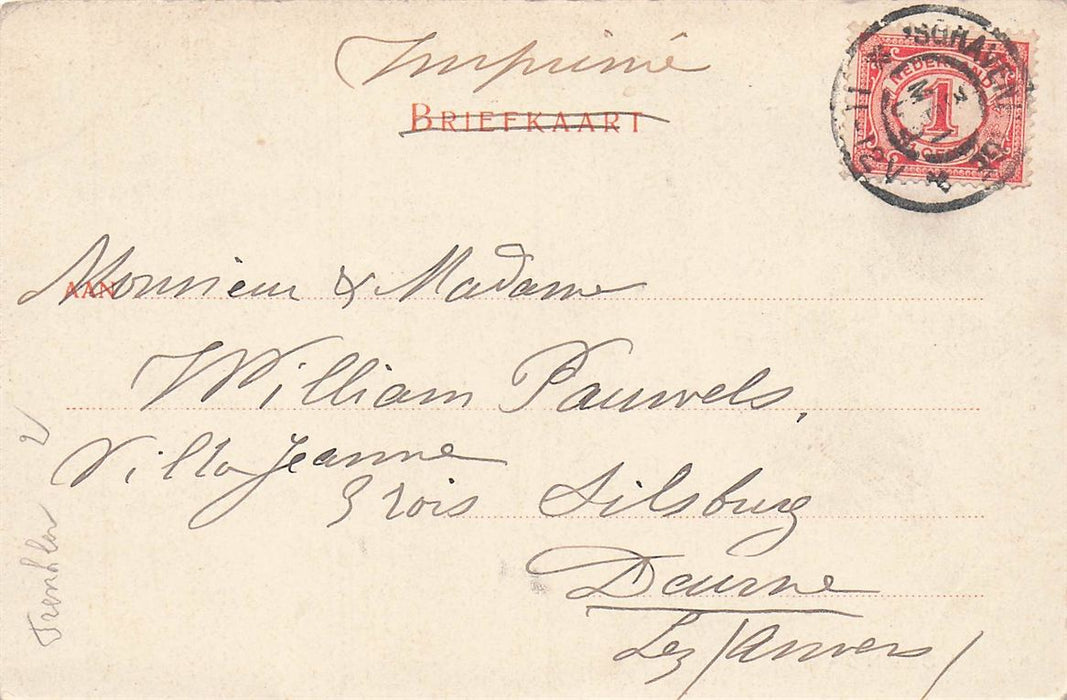 Imprimé
BRIEFKAART
'S GRAVENHAGE
NEDERLAND
1
CENT
AAN Monsieur & Madame
William Pauwels,
Villa Jeanne
Bois Silsburg
Deurne
Lez (Anvers)
2